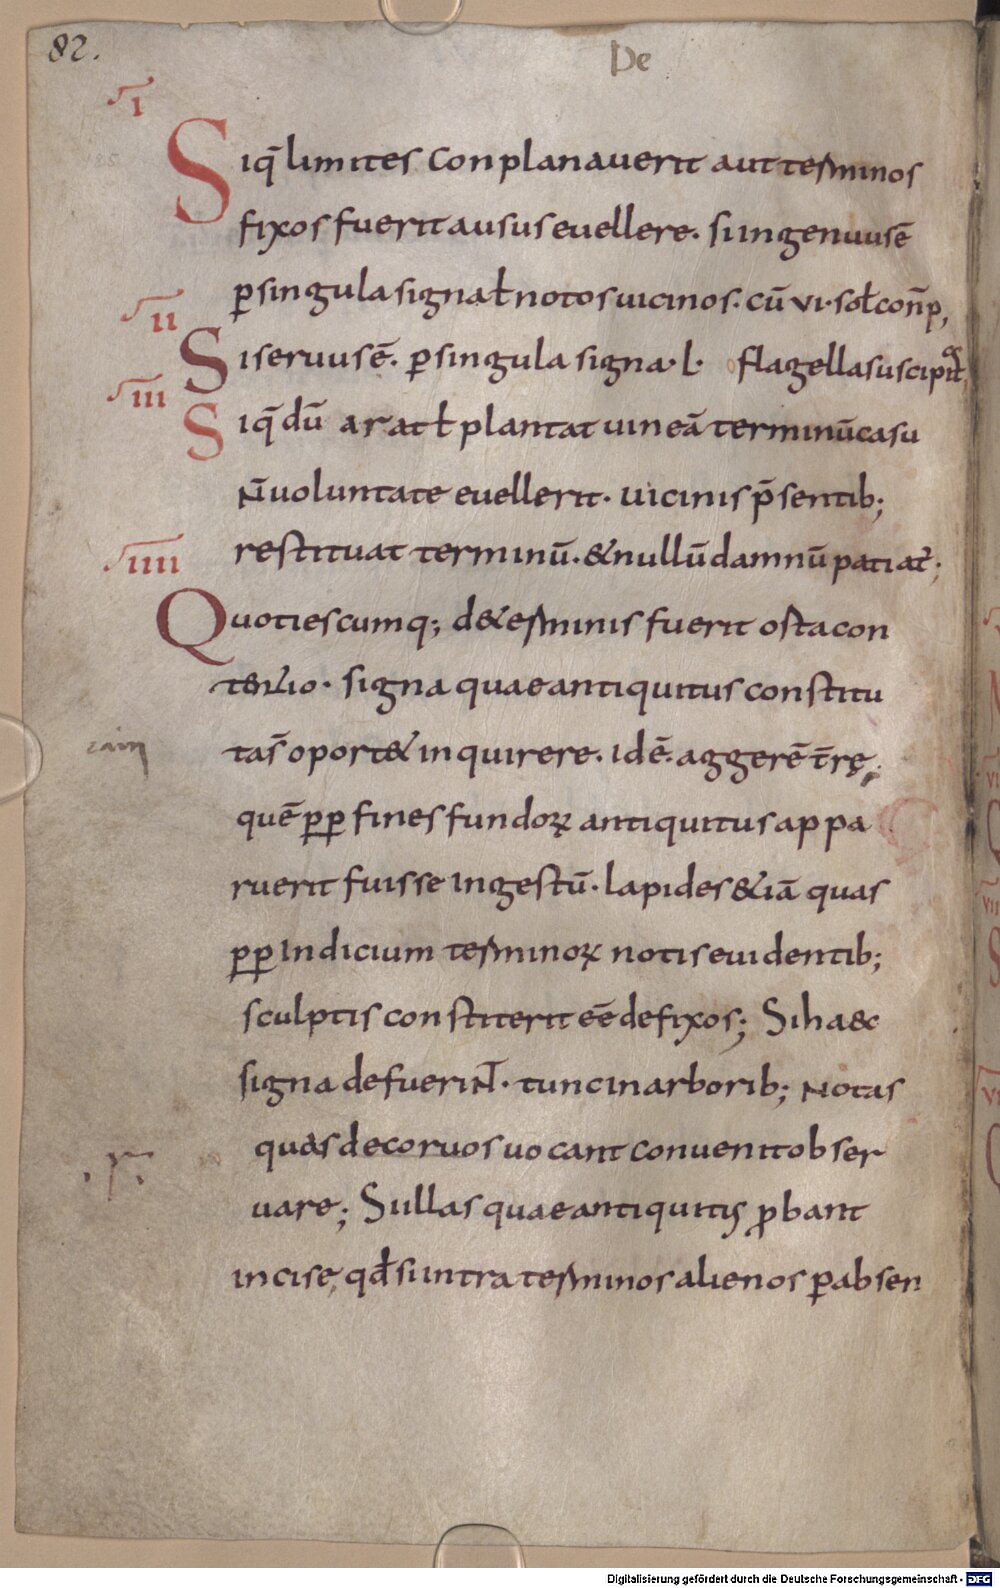 82.
De
I
Siq̄ limites conplanauerit aut terminos
fixos fuerit ausus euellere. si ingenuus ē
ꝑ singula signa ł notos uicinos. cū VI. soł conp̄,
II
Si seruus ē. ꝑ singula signa. L. flagella suscipiat
III
Siq̄ dū arat ł plantat uineā terminū casu
N̄ uoluntate euellerit. uicinis p̄sentib;
restituat terminū. & nullū damnū patiat̄;
IIII
Quotiescumq; de terminis fuerit orta con
tentio. signa quae antiquitus constitu
ta s̄ oportet inquirere. id ē. aggerē t̄rę,
quē ꝑꝑ fines fundoꝝ antiquitus appa
ruerit fuisse ingestū. lapides &iā quas
ꝑꝑ indicium terminoꝝ notis euidentib;
sculptis constiterit eē defixos; Si haec
signa defuerint. tunc in arborib; notas
quas decoruos uocant conuenit obser
uare; Si illas quae antiquitus ꝓbant
incise, qđ si intra terminos alienos ꝑ absen
Digitalisierung gefördert durch die Deutsche Forschungsgemeinschaft - DFG